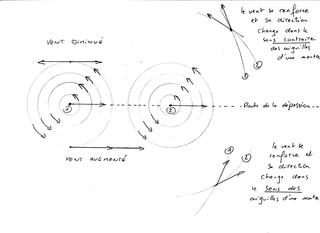 VENT DIMINUÉ
le vent se renforce
et sa direction
change dans le
sens contraire
des aiguilles
d'une montre
1
2
1
2
Route de la dépression...
VENT AUGMENTÉ
1
2
le vent se
renforce et
sa direction
change dans
le sens des
aiguilles d'une montre